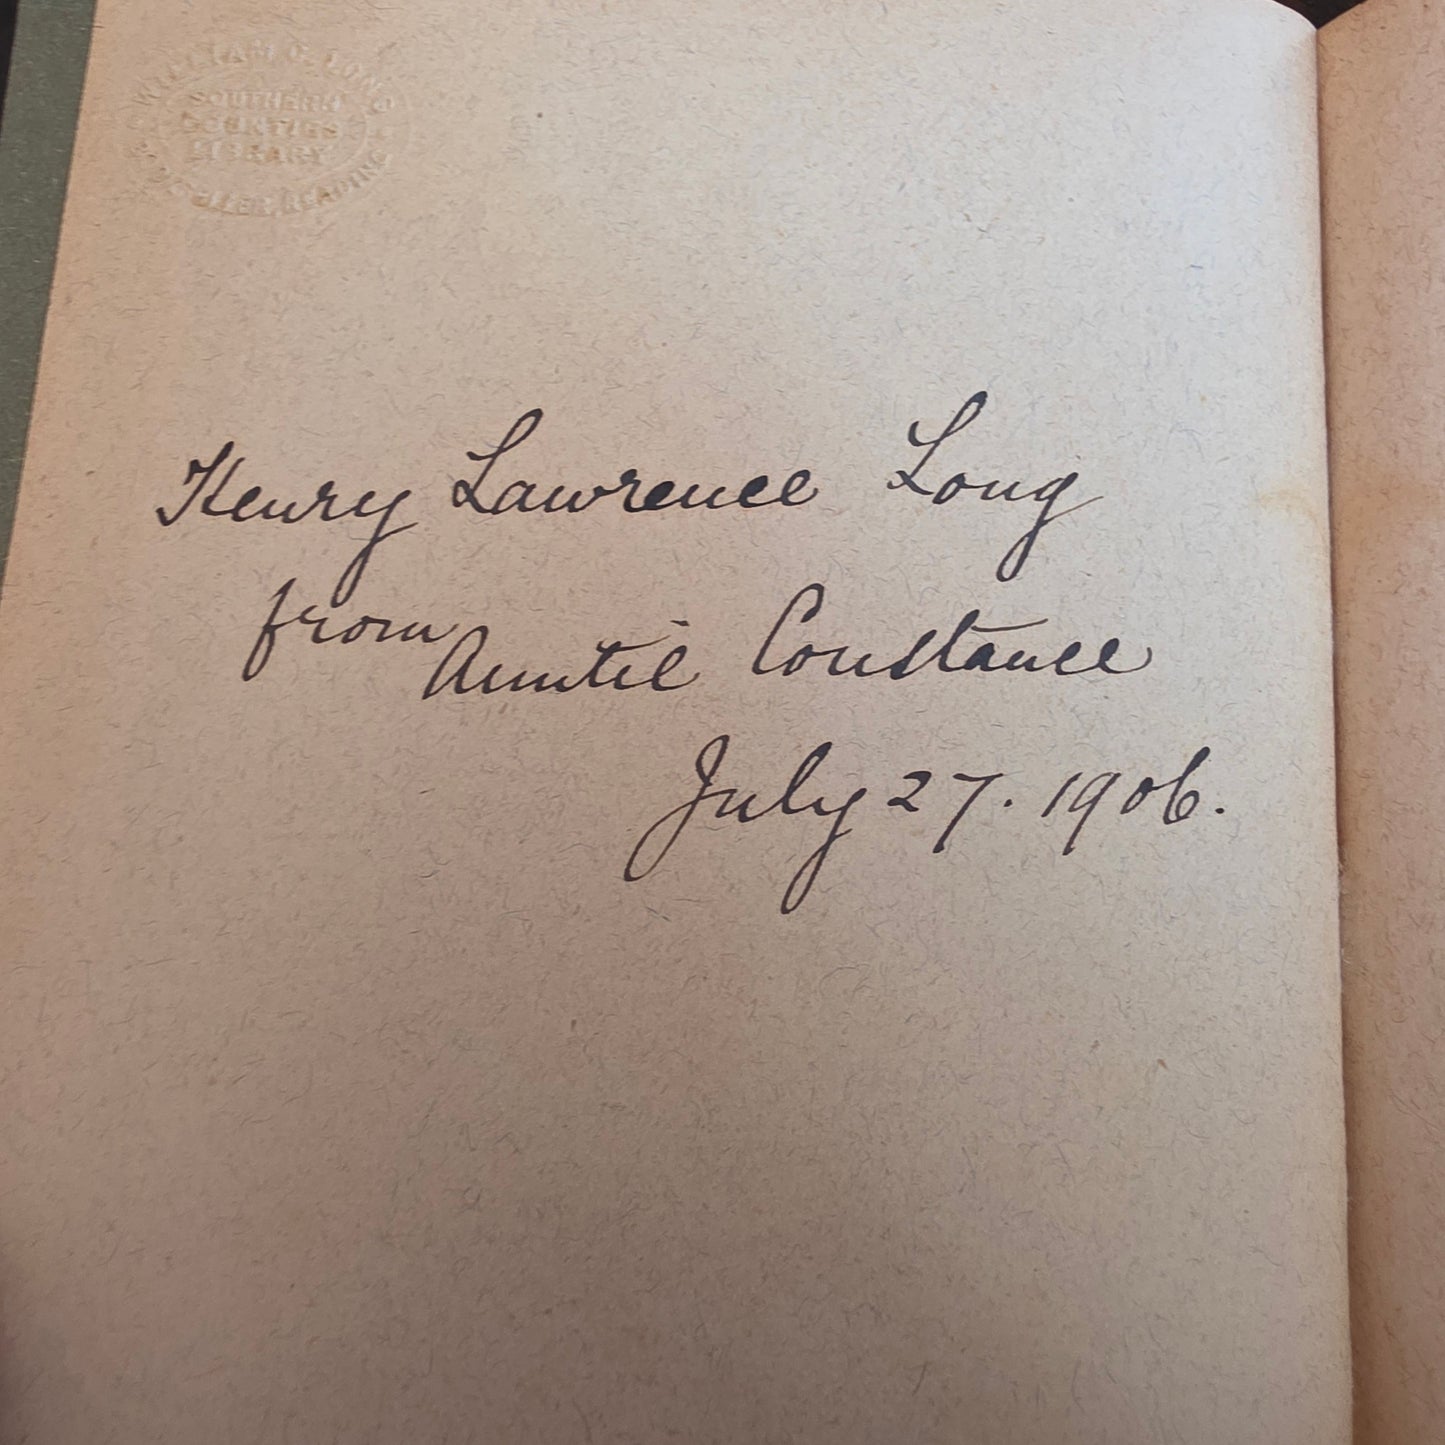 WILLIAM C. LONG
SOUTHERN
COUNTIES
LIBRARY
BOOKSELLER, READING
Henry Lawrence Long
from
Auntie Constance
July 27. 1906.